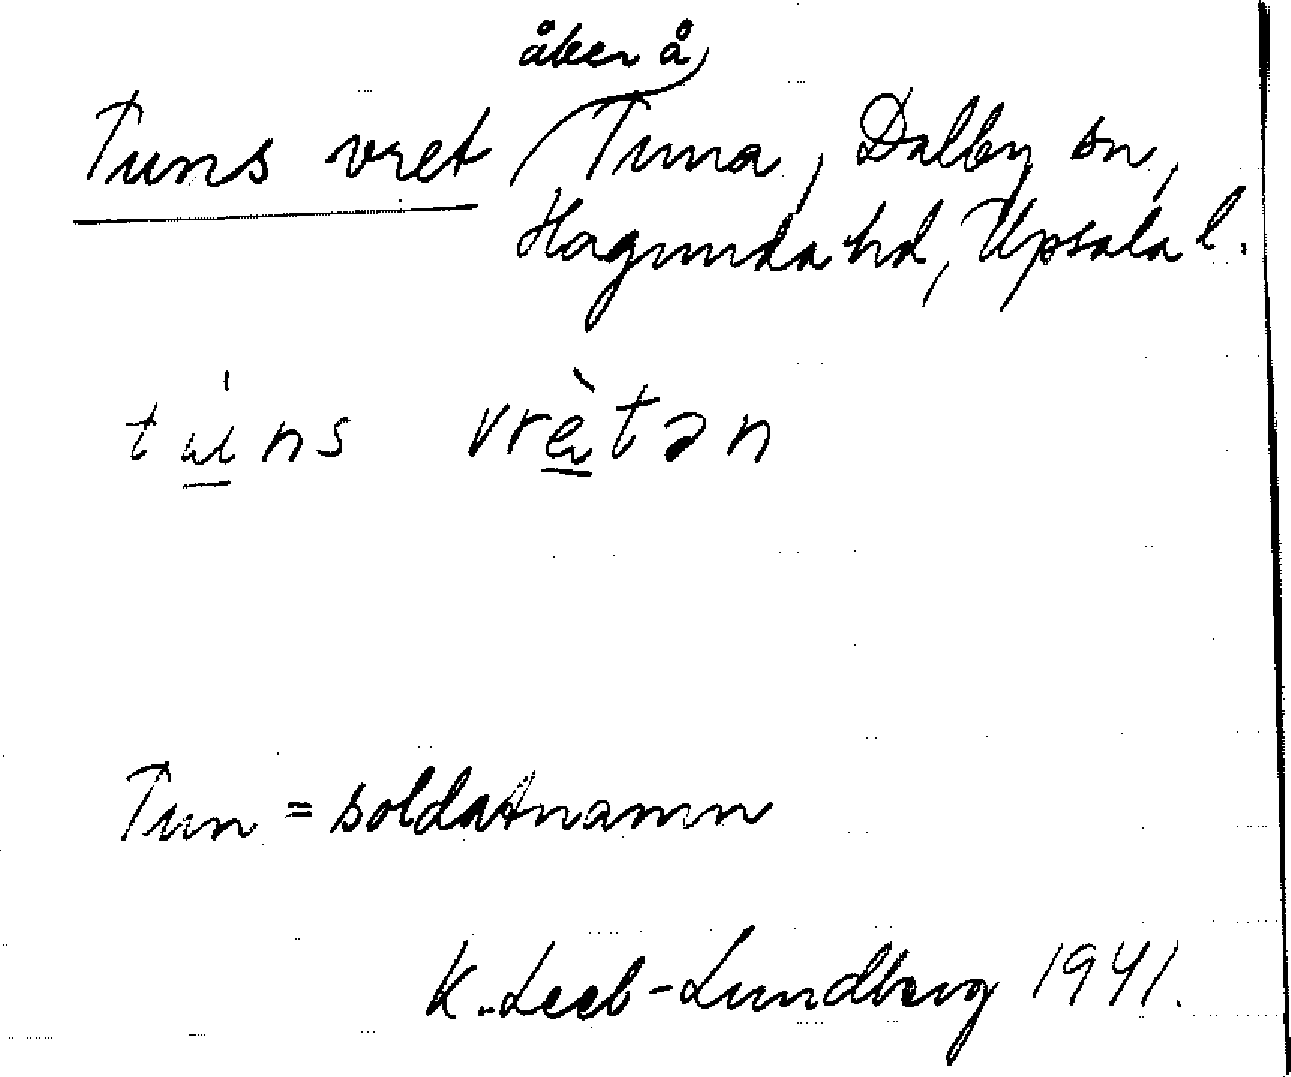 åker å
Tuns vret Tuna, Dalby sn,
Hagunda hd, Upsala l.
tú̲ns vrè̲tən
Tun = soldatnamn
K. Leeb-Lundberg 1941.